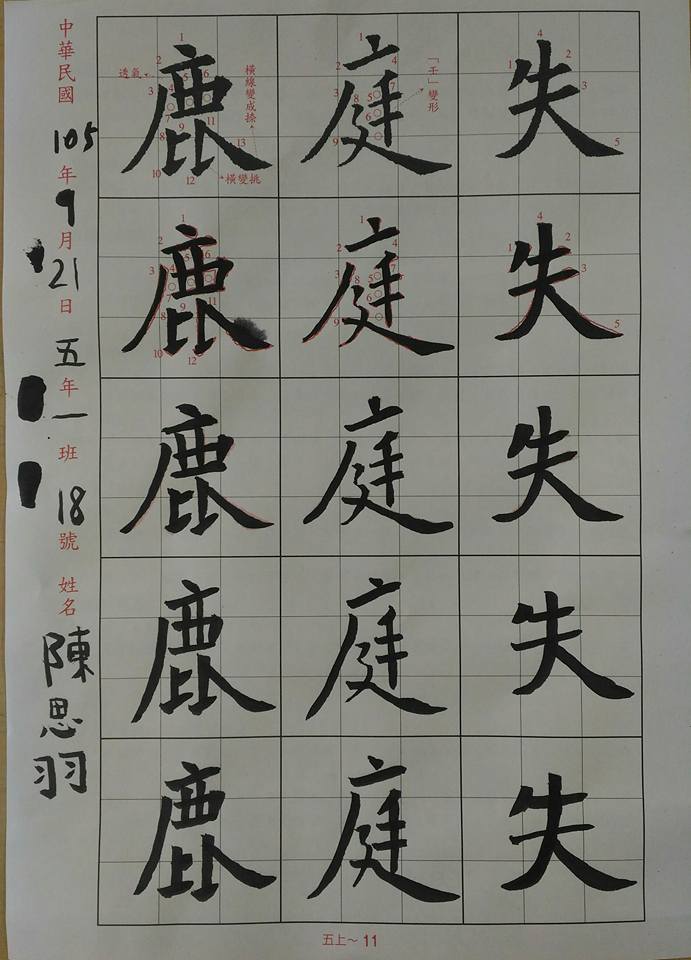 失
失
失
失
失
庭
庭
庭
庭
庭
「壬」變形
鹿
鹿
鹿
鹿
鹿
透氣
橫線變成捺
橫變挑
中華民國105年9月21日五年一班18號 姓名陳思羽
五上~11